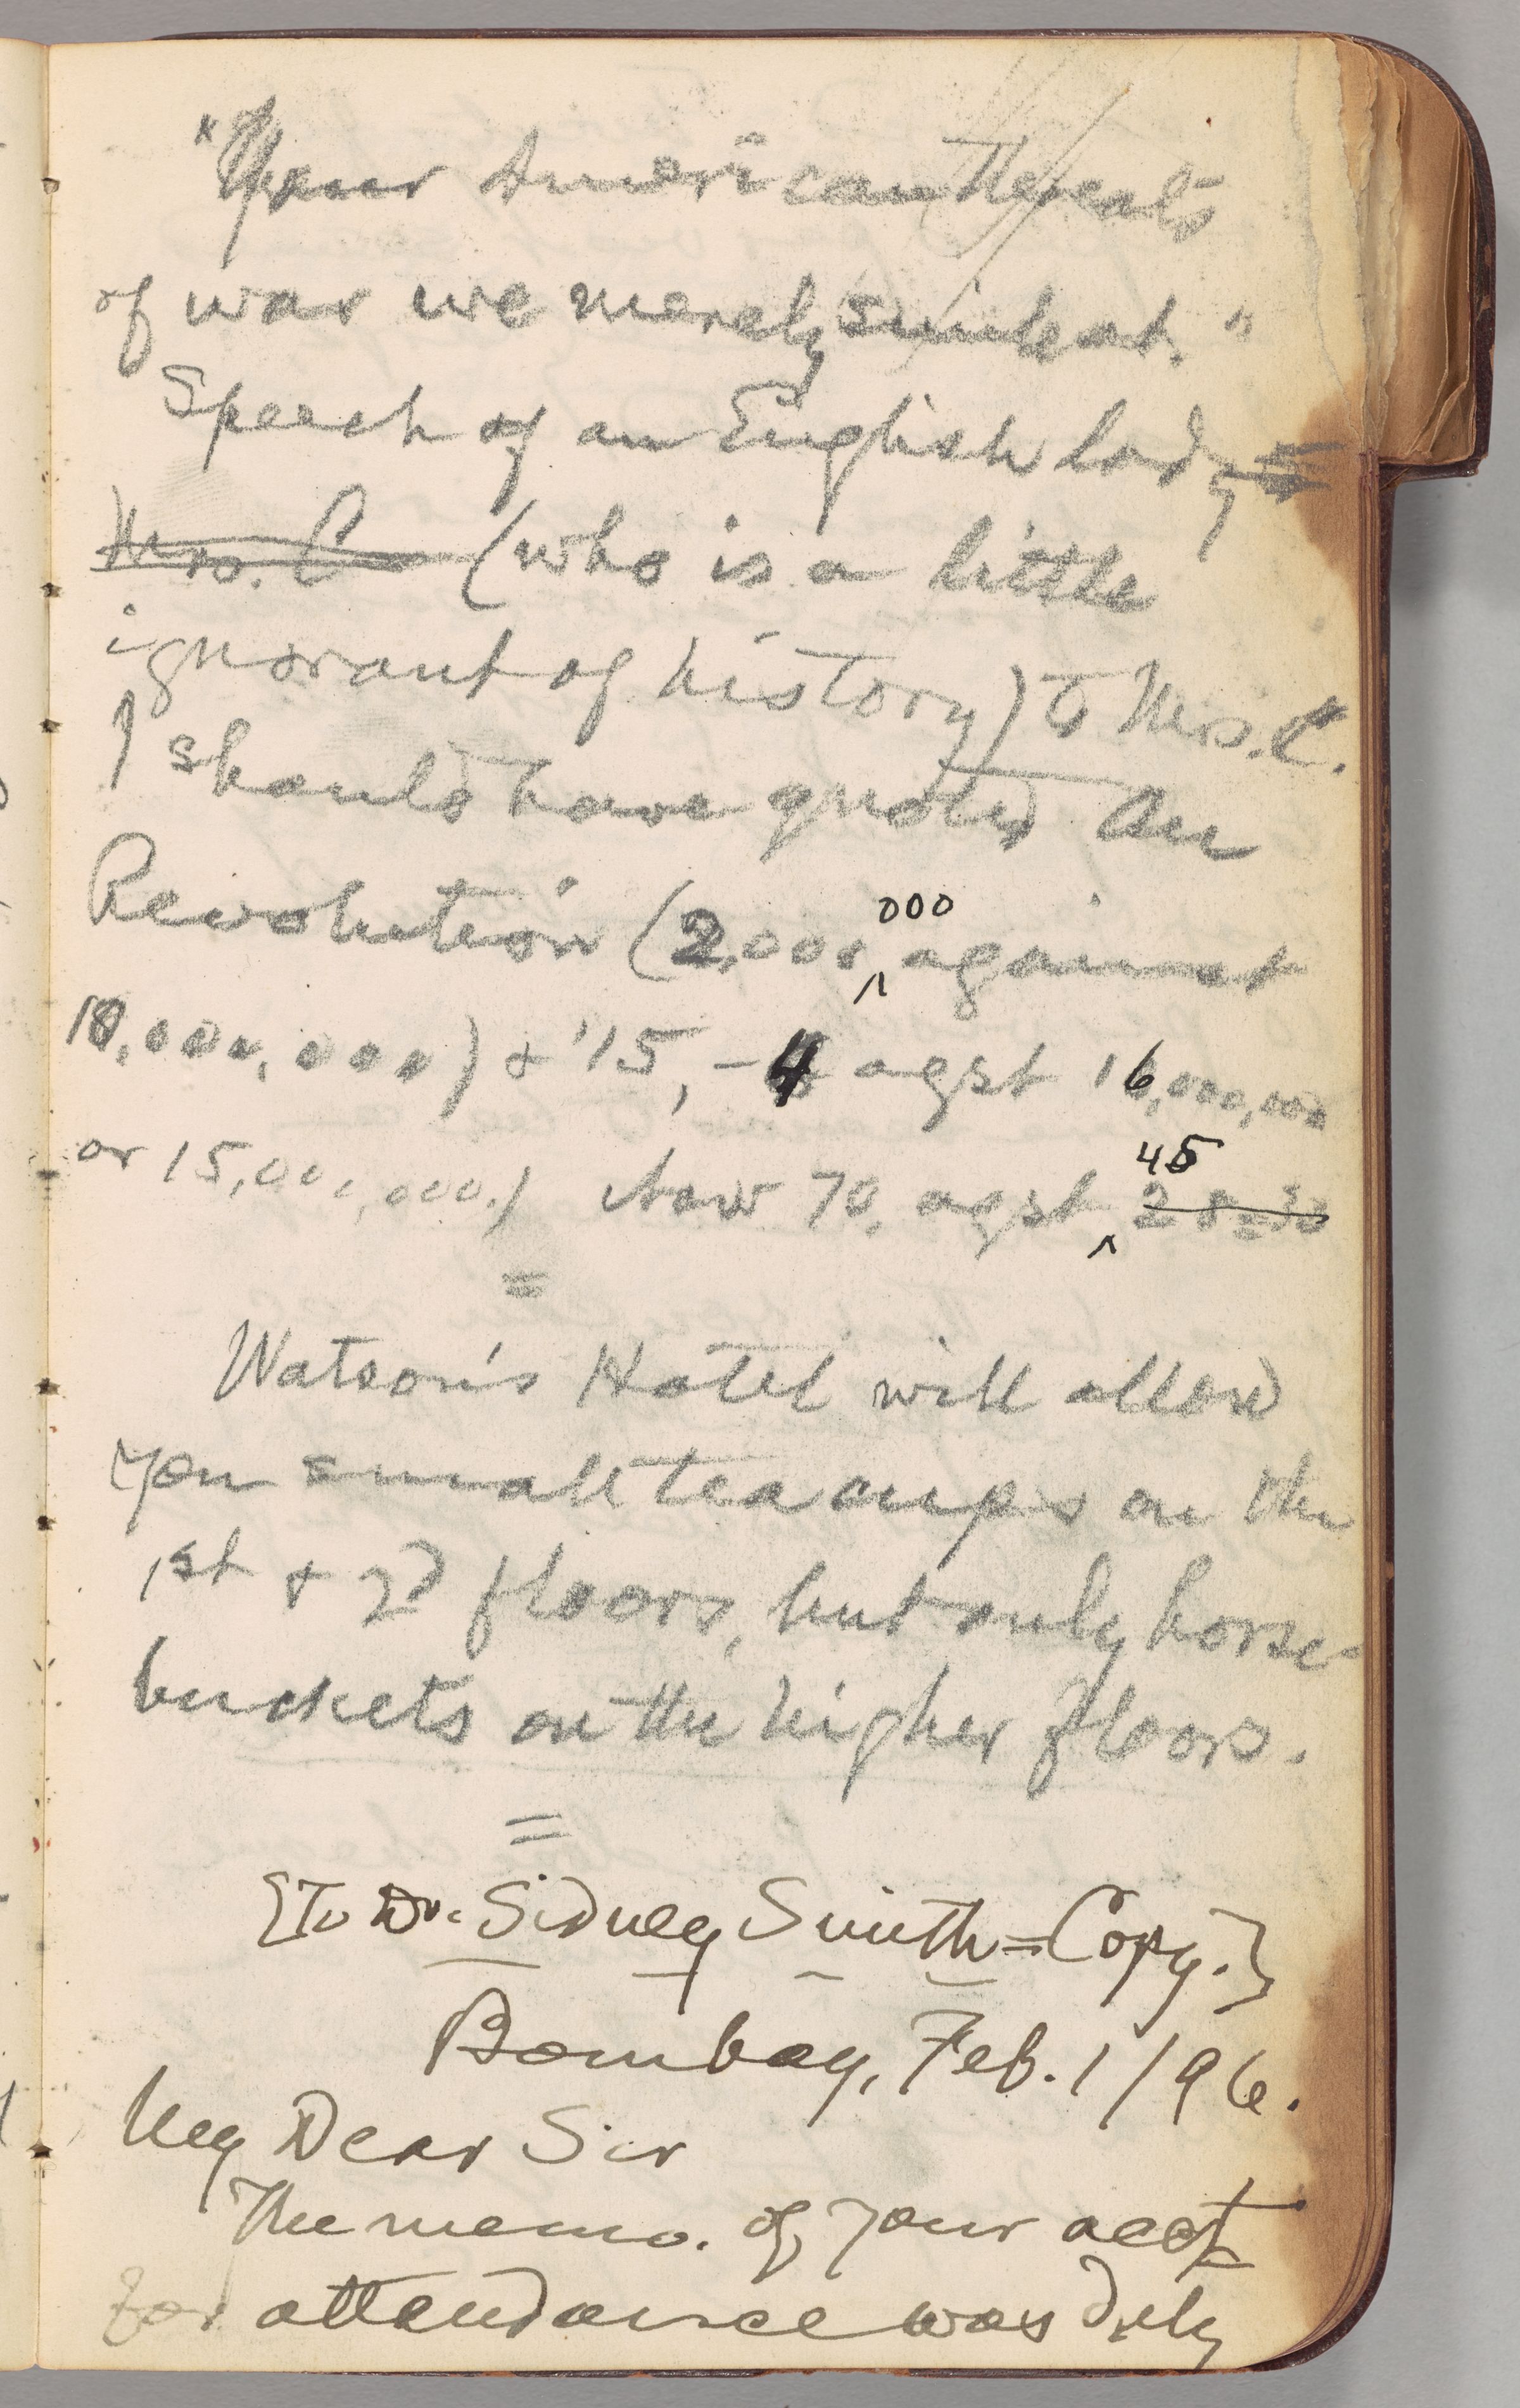 "Your American threats
of war we merely smile at."
Speech of an English lady
Mrs. C (who is a little
ignorant of history) to Mrs. C.
I should have quoted the
Revolution (2,000,000 against
10,000,000) & '15, – 4 agst 16,000,000
or 15,000,000.) Now 70, agst 45 28=30
=
Watson's Hotel will allow
you small tea cups on the
1st & 2d floors, but only horse-
buckets on the higher floors.
=
[To Dr. Sidney Smith = Copy.]
Bombay, Feb. 1/96.
My Dear Sir
The memo. of your acct
for attendance was duly